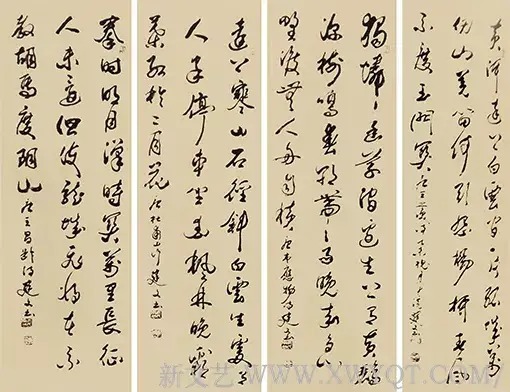 黄河远上白云间一片孤城万
仞山羌笛何须怨杨柳春风
不度玉门关唐王之涣诗
独怜幽草涧边生上有黄鹂
深树鸣春潮带雨晚来急
野渡无人舟自横唐韦应物诗建文书
远上寒山石径斜白云生处有
人家停车坐爱枫林晚霜
叶红于二月花唐杜牧山行建文书
秦时明月汉时关万里长征
人未还但使龙城飞将在不
教胡马度阴山唐王昌龄诗建文书
新文艺